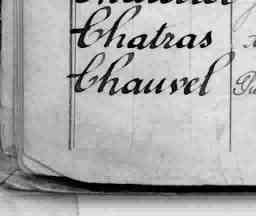 Chatras
Chauvel